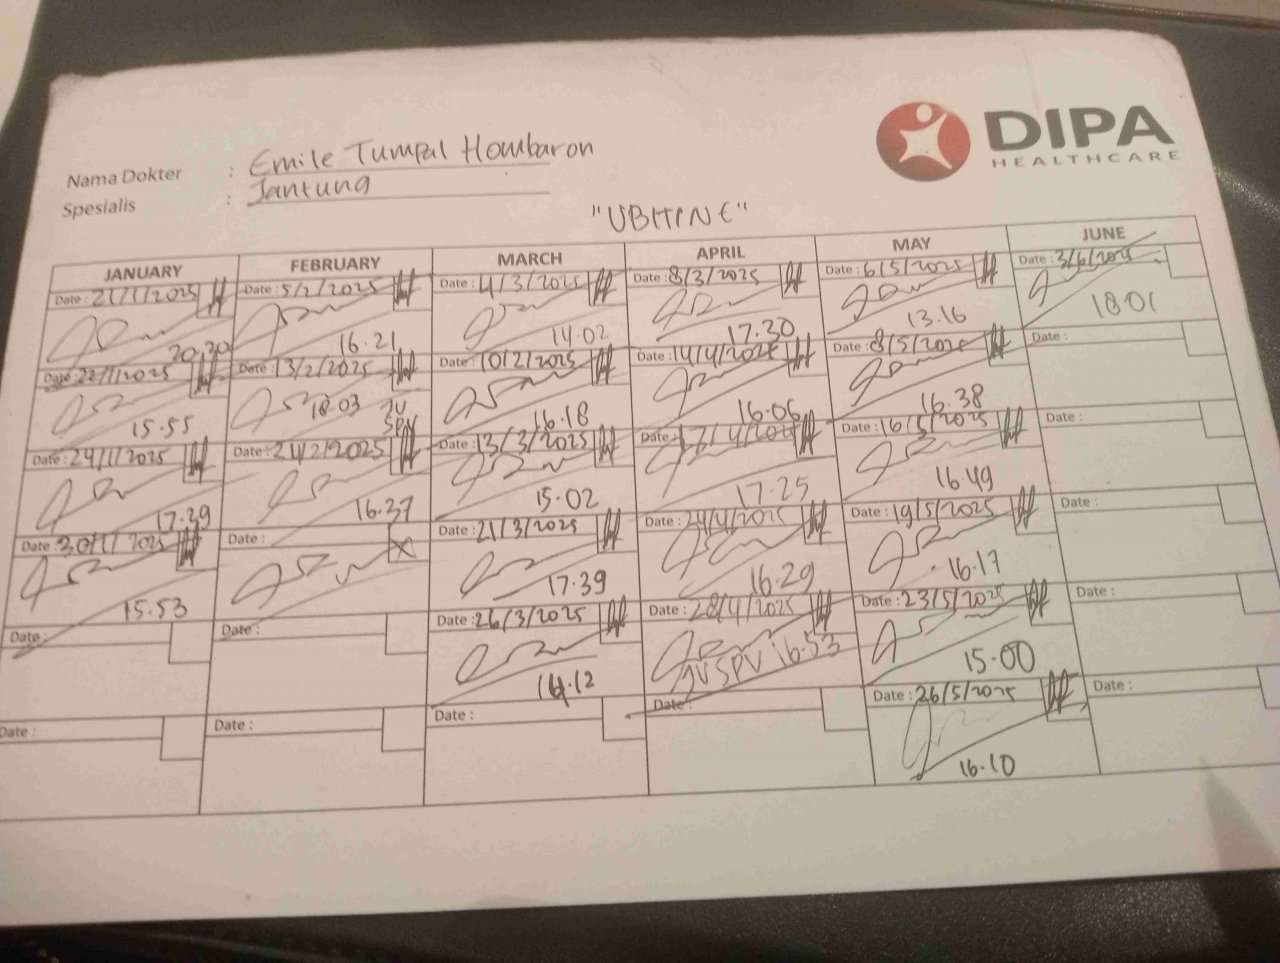 DIPA
HEALTHCARE
Nama Dokter : Emile Tumpal Hombaron
Spesialis : Jantung
"UBHINE"
JANUARY FEBRUARY MARCH APRIL MAY JUNE
Date : 21/1/2025 Date : 5/2/2025 Date : 4/3/2025 Date : 8/3/2025 Date : 6/5/2025 Date : 3/6/2025
20.30 16.21 14.02 17.30 13.16 18.01
Date : 22/1/2025 Date : 13/2/2025 Date : 10/2/2025 Date : 14/4/2025 Date : 8/5/2025 Date :
15.55 18.03 JV SPV 16.18 16.06 16.38
Date : 24/1/2025 Date : 24/2/2025 Date : 13/3/2025 Date : 17/4/2025 Date : 16/5/2025 Date :
17.39 16.37 15.02 17.25 16.49
Date : 30/1/2025 Date : Date : 21/3/2025 Date : 24/4/2025 Date : 19/5/2025 Date :
15.53 17.39 16.29 16.17
Date : Date : Date : 26/3/2025 Date : 28/4/2025 Date : 23/5/2025 Date :
14.12 JV SPV 16.53 15.00
Date : Date : Date : Date : Date : 26/5/2025 Date :
16.10